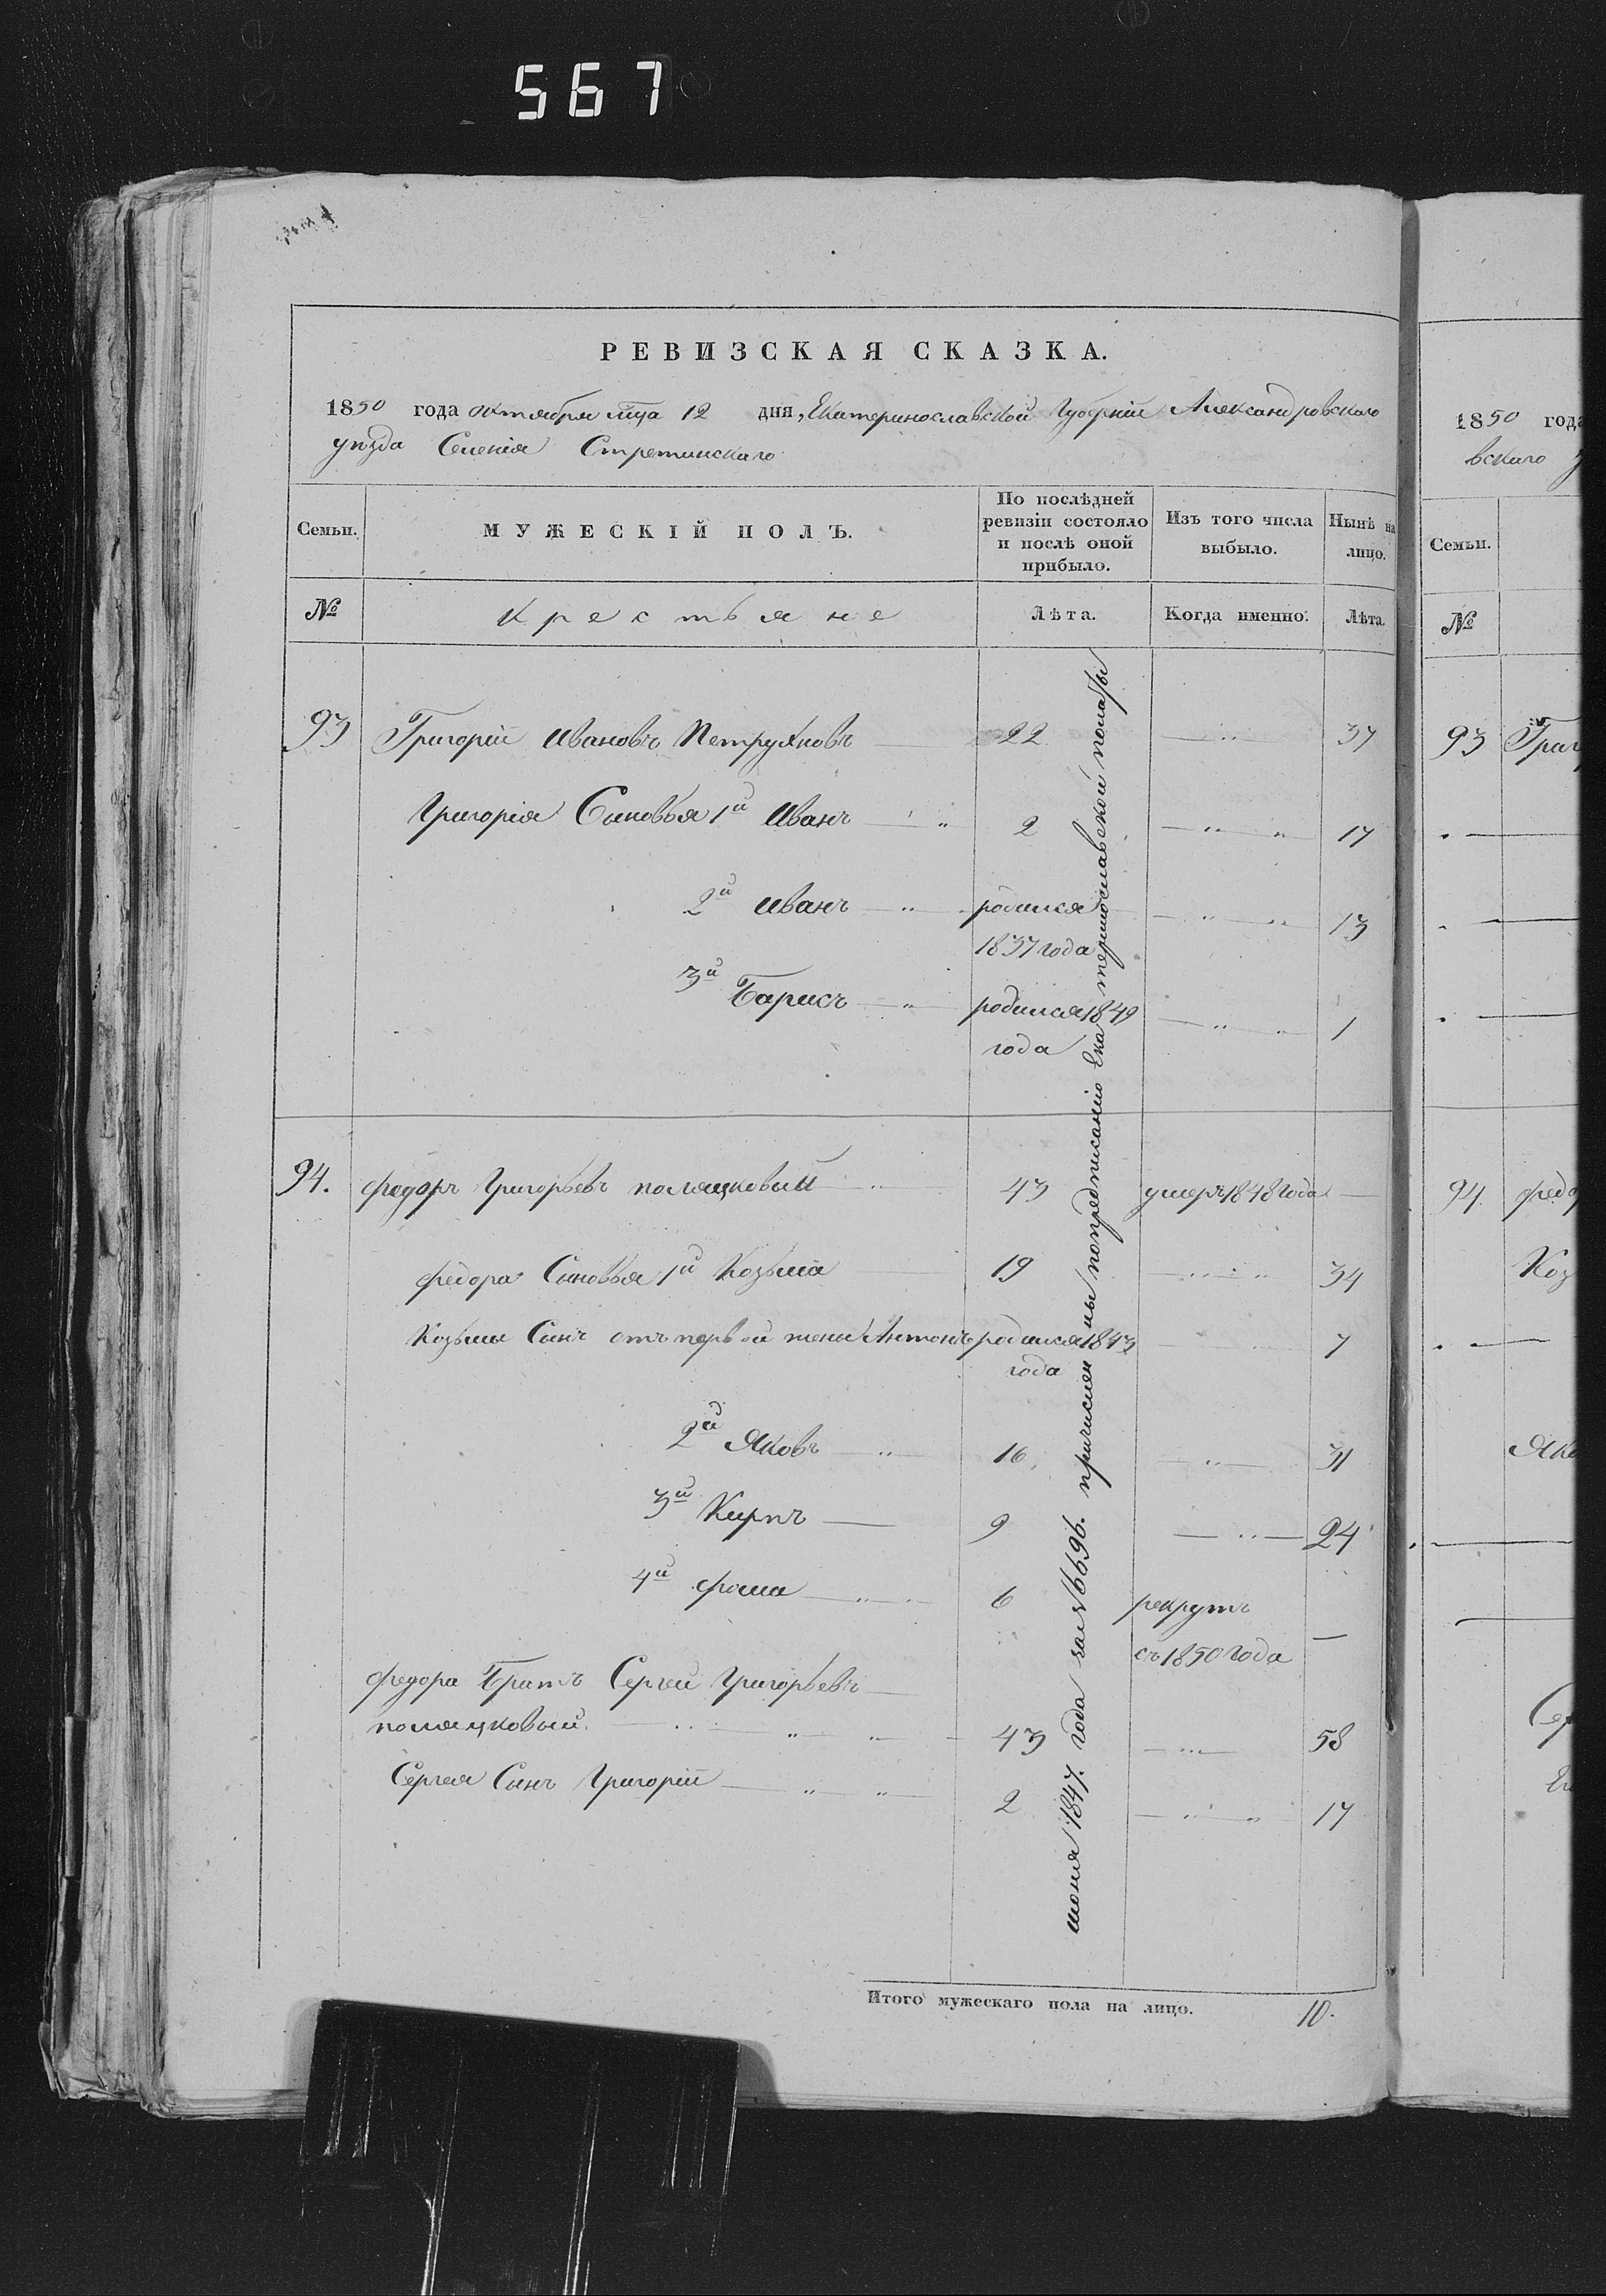 567
РЕВИЗСКАЯ СКАЗКА.
1850 года октября мца 12 дня, Екатеринославской Губерніи Александровскаго
уѣзда Селенія Стретинскаго
Семьи.
МУЖЕСКІЙ ПОЛЪ.
По послѣдней
ревизіи состояло
и послѣ оной
прибыло.
Изъ того числа
выбыло.
Нынѣ на
лицо.
№ Крестьяне Лѣта. Когда именно. Лѣта.
93 Григорій Ивановъ Петрухновъ 22 37
Григорія Сыновья 1й Иванъ 2 17
2й Иванъ родился 13
1837 года
3й Барисъ родился 1849 1
года
94. Федоръ Григорьевъ поляцковый 43 умеръ 1848 года
Федора Сыновья 1й Козьма 19 34
Козьмы Сынъ отъ первой жены Антонъ родился 1843 7
года
2й Яковъ 16 31
3й Кирпъ 9 24
4й Фома 6 рекрутъ
съ 1850 года
Федора Братъ Сергей Григорьевъ
поляцковый 43 58
Сергея Сынъ Григорій 2 17
причислены по предписанію Екатеринославской палаты
июня 1847. года за № 6696.
Итого мужескаго пола на лицо. 10.
1850 года
вскаго
Семьи.
№
93 Григ
94 Федо
Коз
Яко
Сер